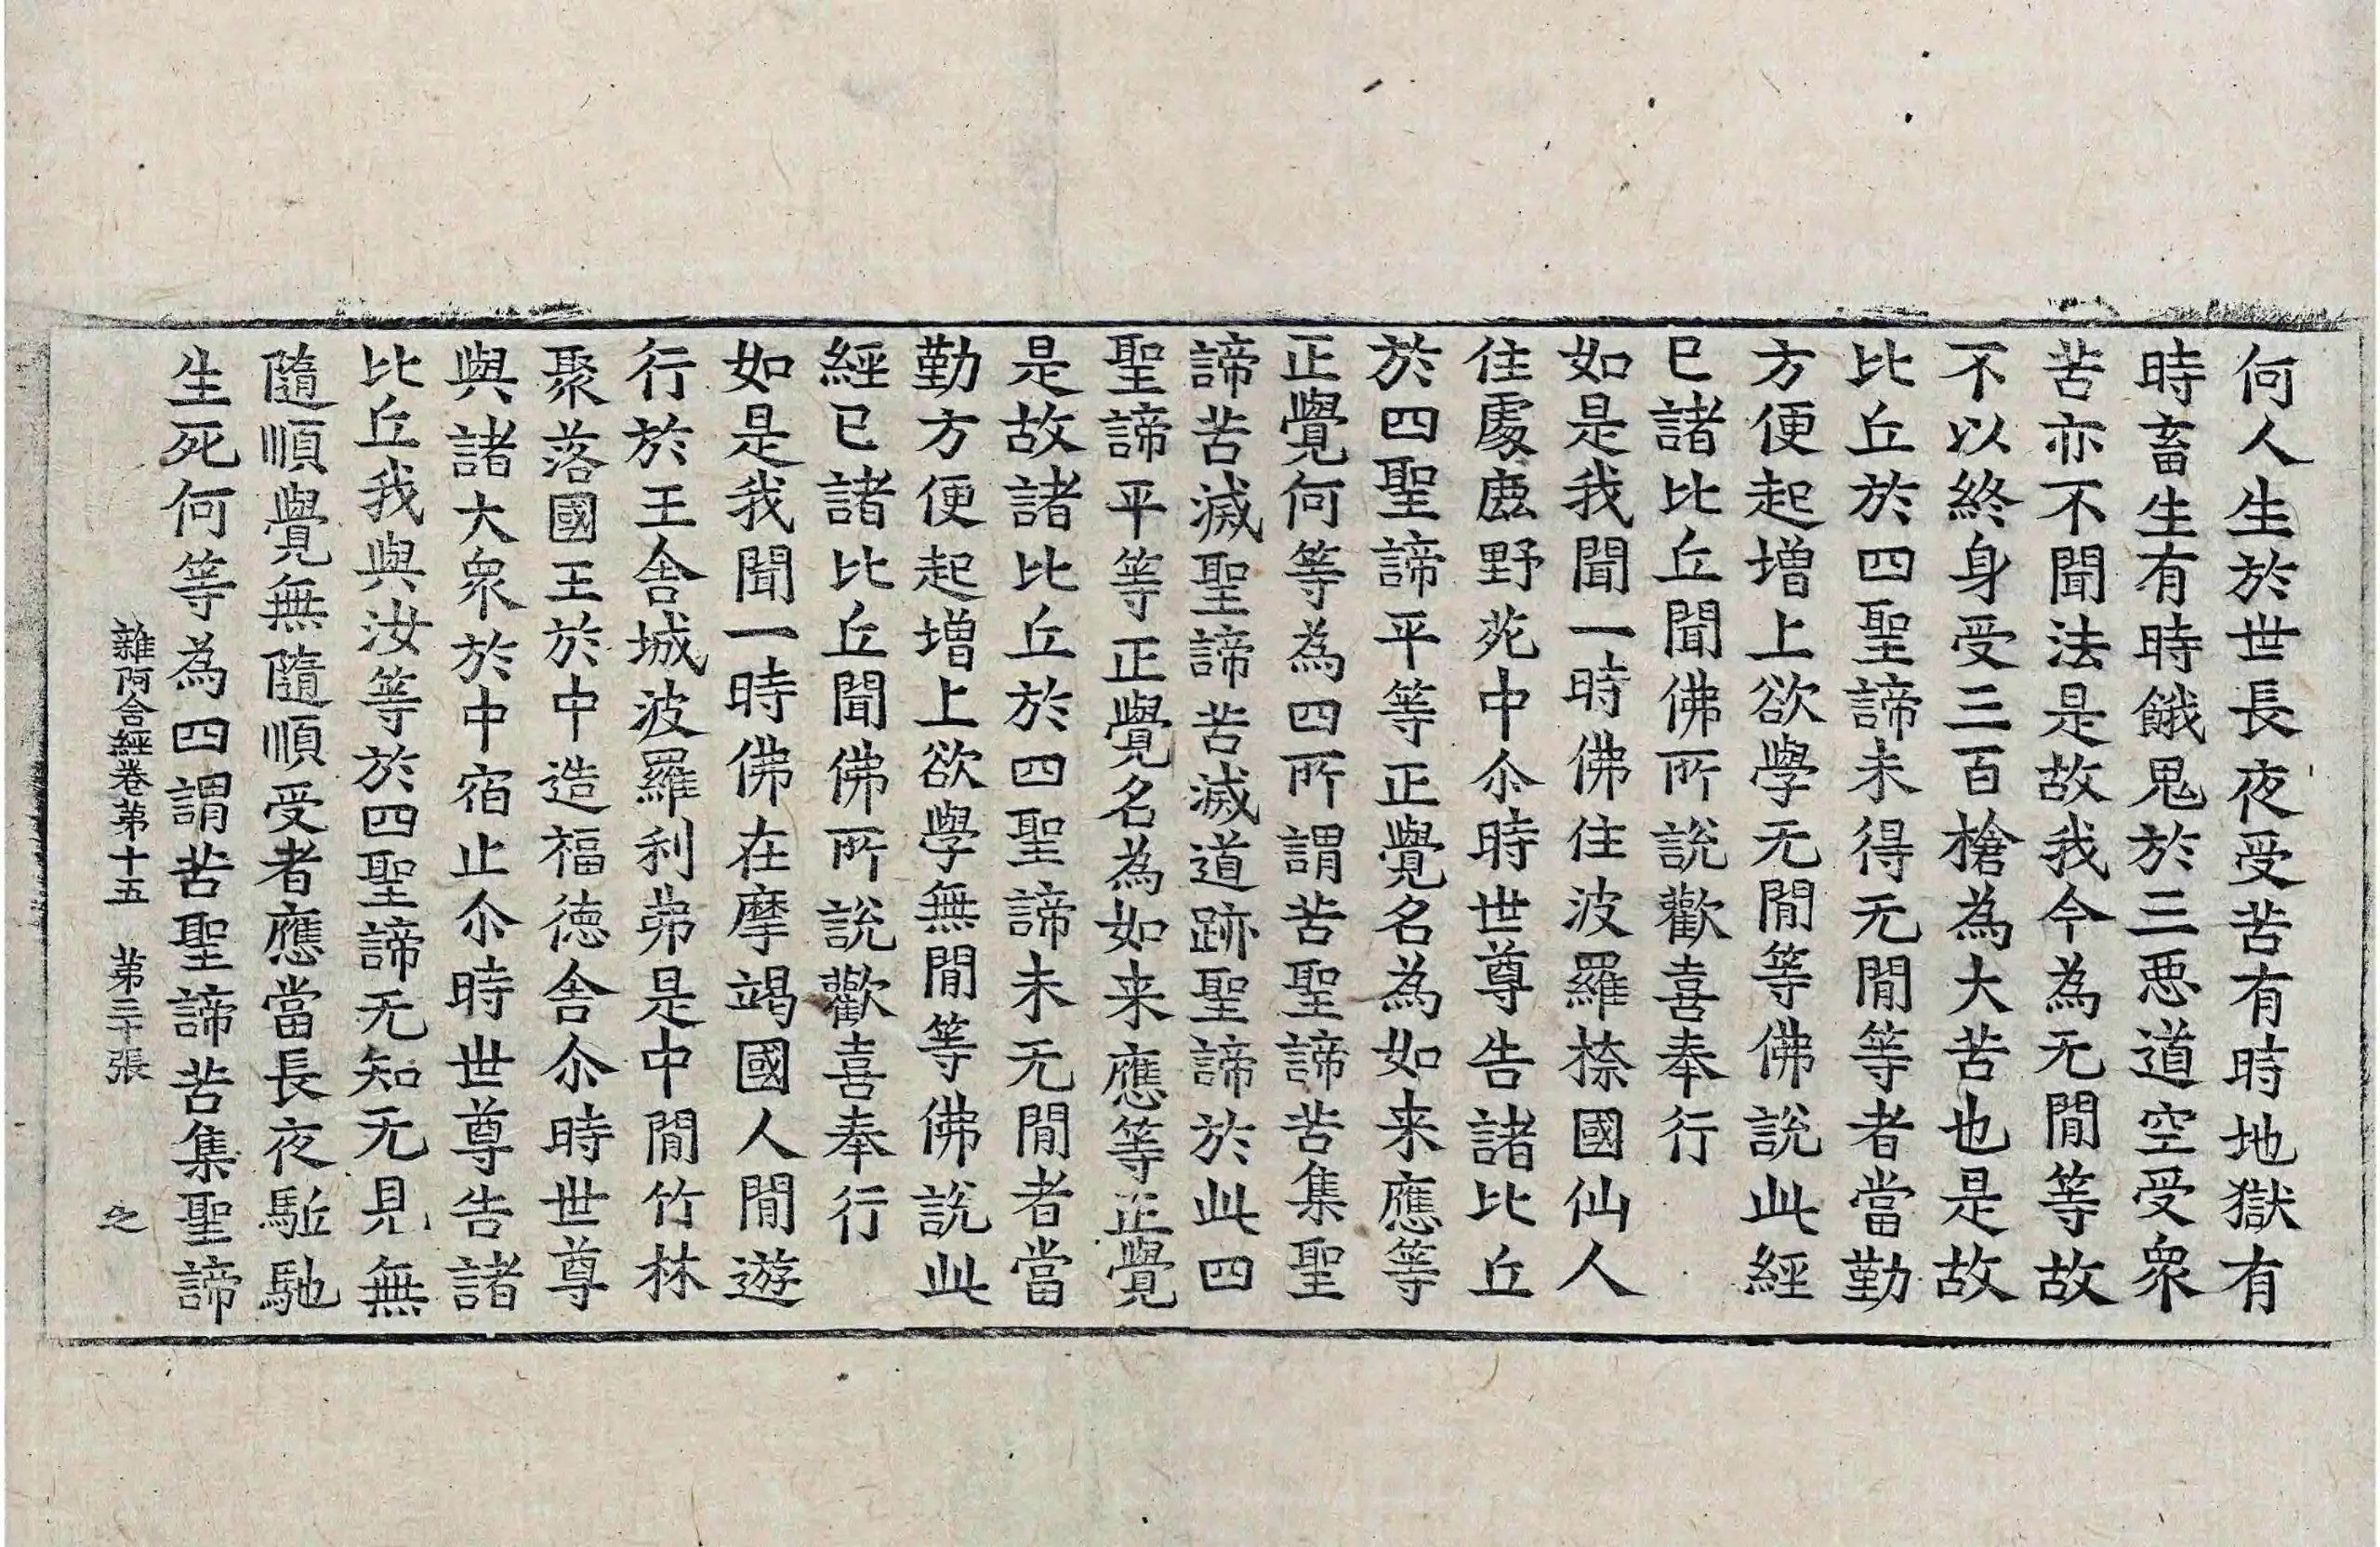 何人生於世長夜受苦有時地獄有
時畜生有時餓鬼於三惡道空受眾
苦亦不聞法是故我今為无閒等故
不以終身受三百槍為大苦也是故
比丘於四聖諦未得无閒等者當勤
方便起增上欲學无閒等佛說此經
已諸比丘聞佛所說歡喜奉行
如是我聞一時佛住波羅㮈國仙人
住處鹿野苑中尒時世尊告諸比丘
於四聖諦平等正覺名為如来應等
正覺何等為四所謂苦聖諦苦集聖
諦苦滅聖諦苦滅道跡聖諦於此四
聖諦平等正覺名為如来應等正覺
是故諸比丘於四聖諦未无閒者當
勤方便起增上欲學無閒等佛說此
經已諸比丘聞佛所說歡喜奉行
如是我聞一時佛在摩竭國人閒遊
行於王舍城波羅利弗是中閒竹林
聚落國王於中造福德舍尒時世尊
與諸大眾於中宿止尒時世尊告諸
比丘我與汝等於四聖諦无知无見無
隨順覺無隨順受者應當長夜駈馳
生死何等為四謂苦聖諦苦集聖諦
雜阿含經卷第十五 第三十張 之